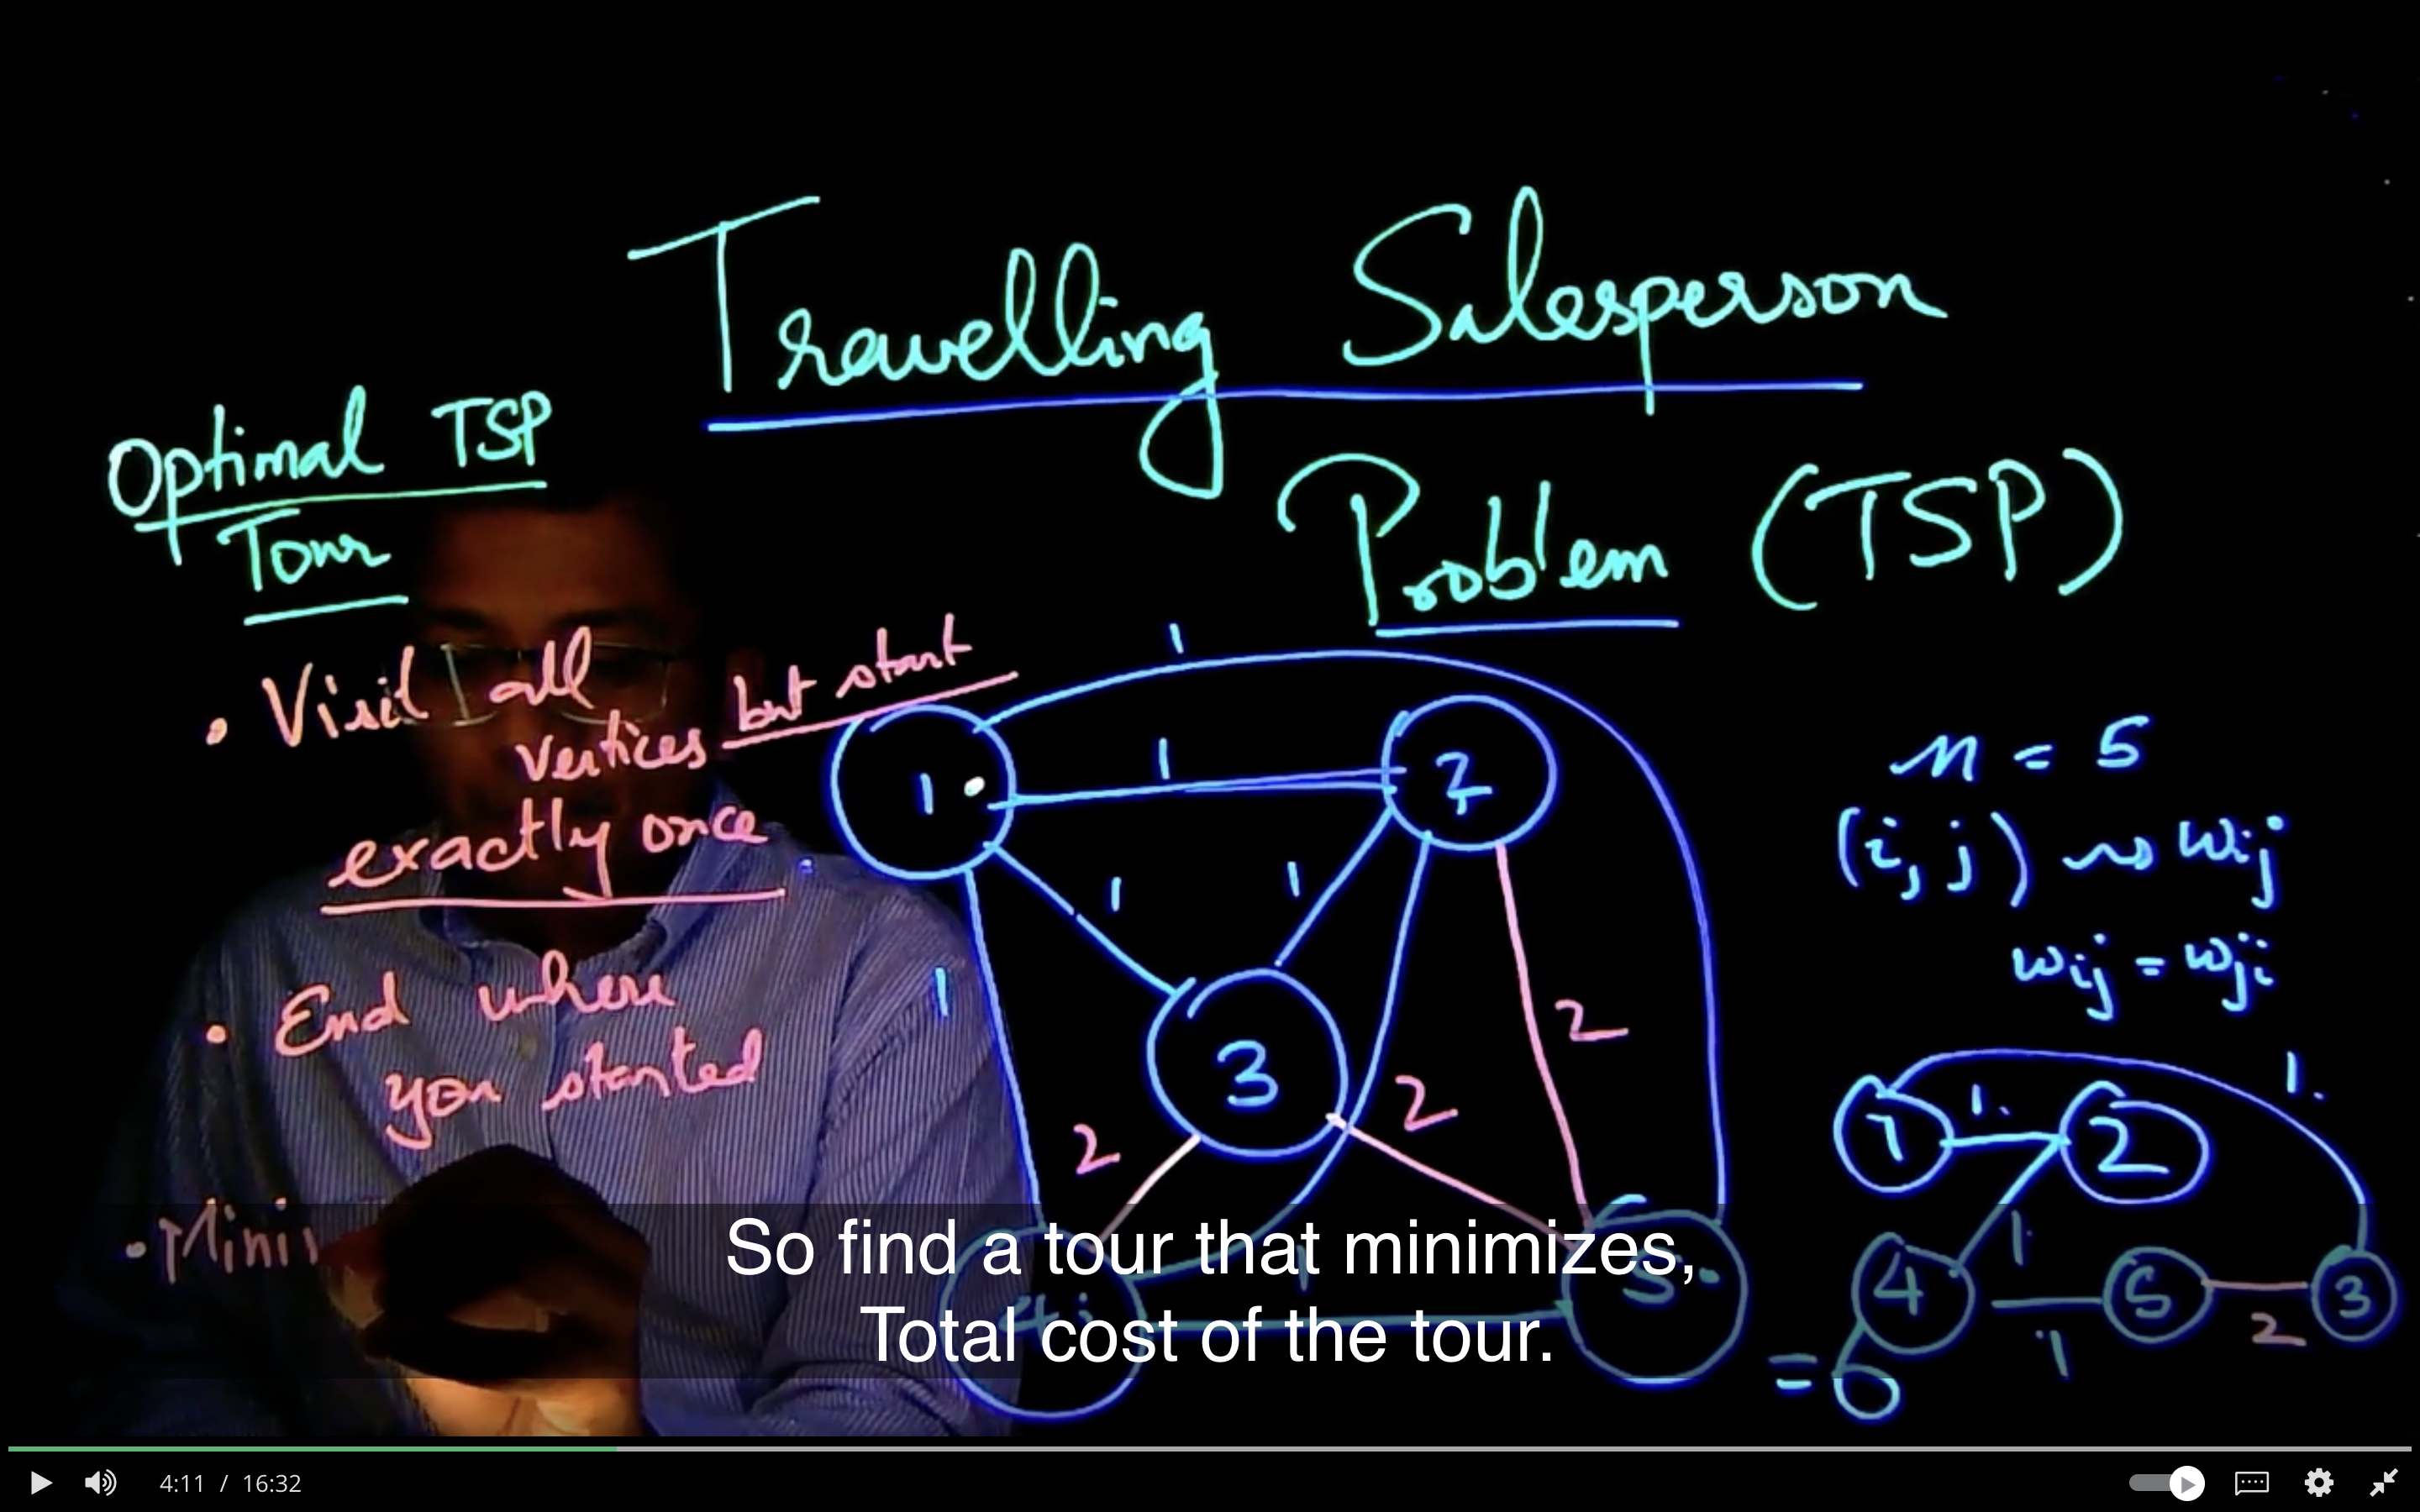 Travelling Salesperson
Problem (TSP)
Optimal TSP
Tour
• Visit all
vertices but start
exactly once
• End where
you started
• Mini
1
1
1
2
1
1
1
3
2
2
2
1
5
n = 5
(i, j) ~> wij
wij = wji
1
1.
2
1.
4
1.
1
5
2
3
= 6
So find a tour that minimizes,
Total cost of the tour.
4:11 / 16:32